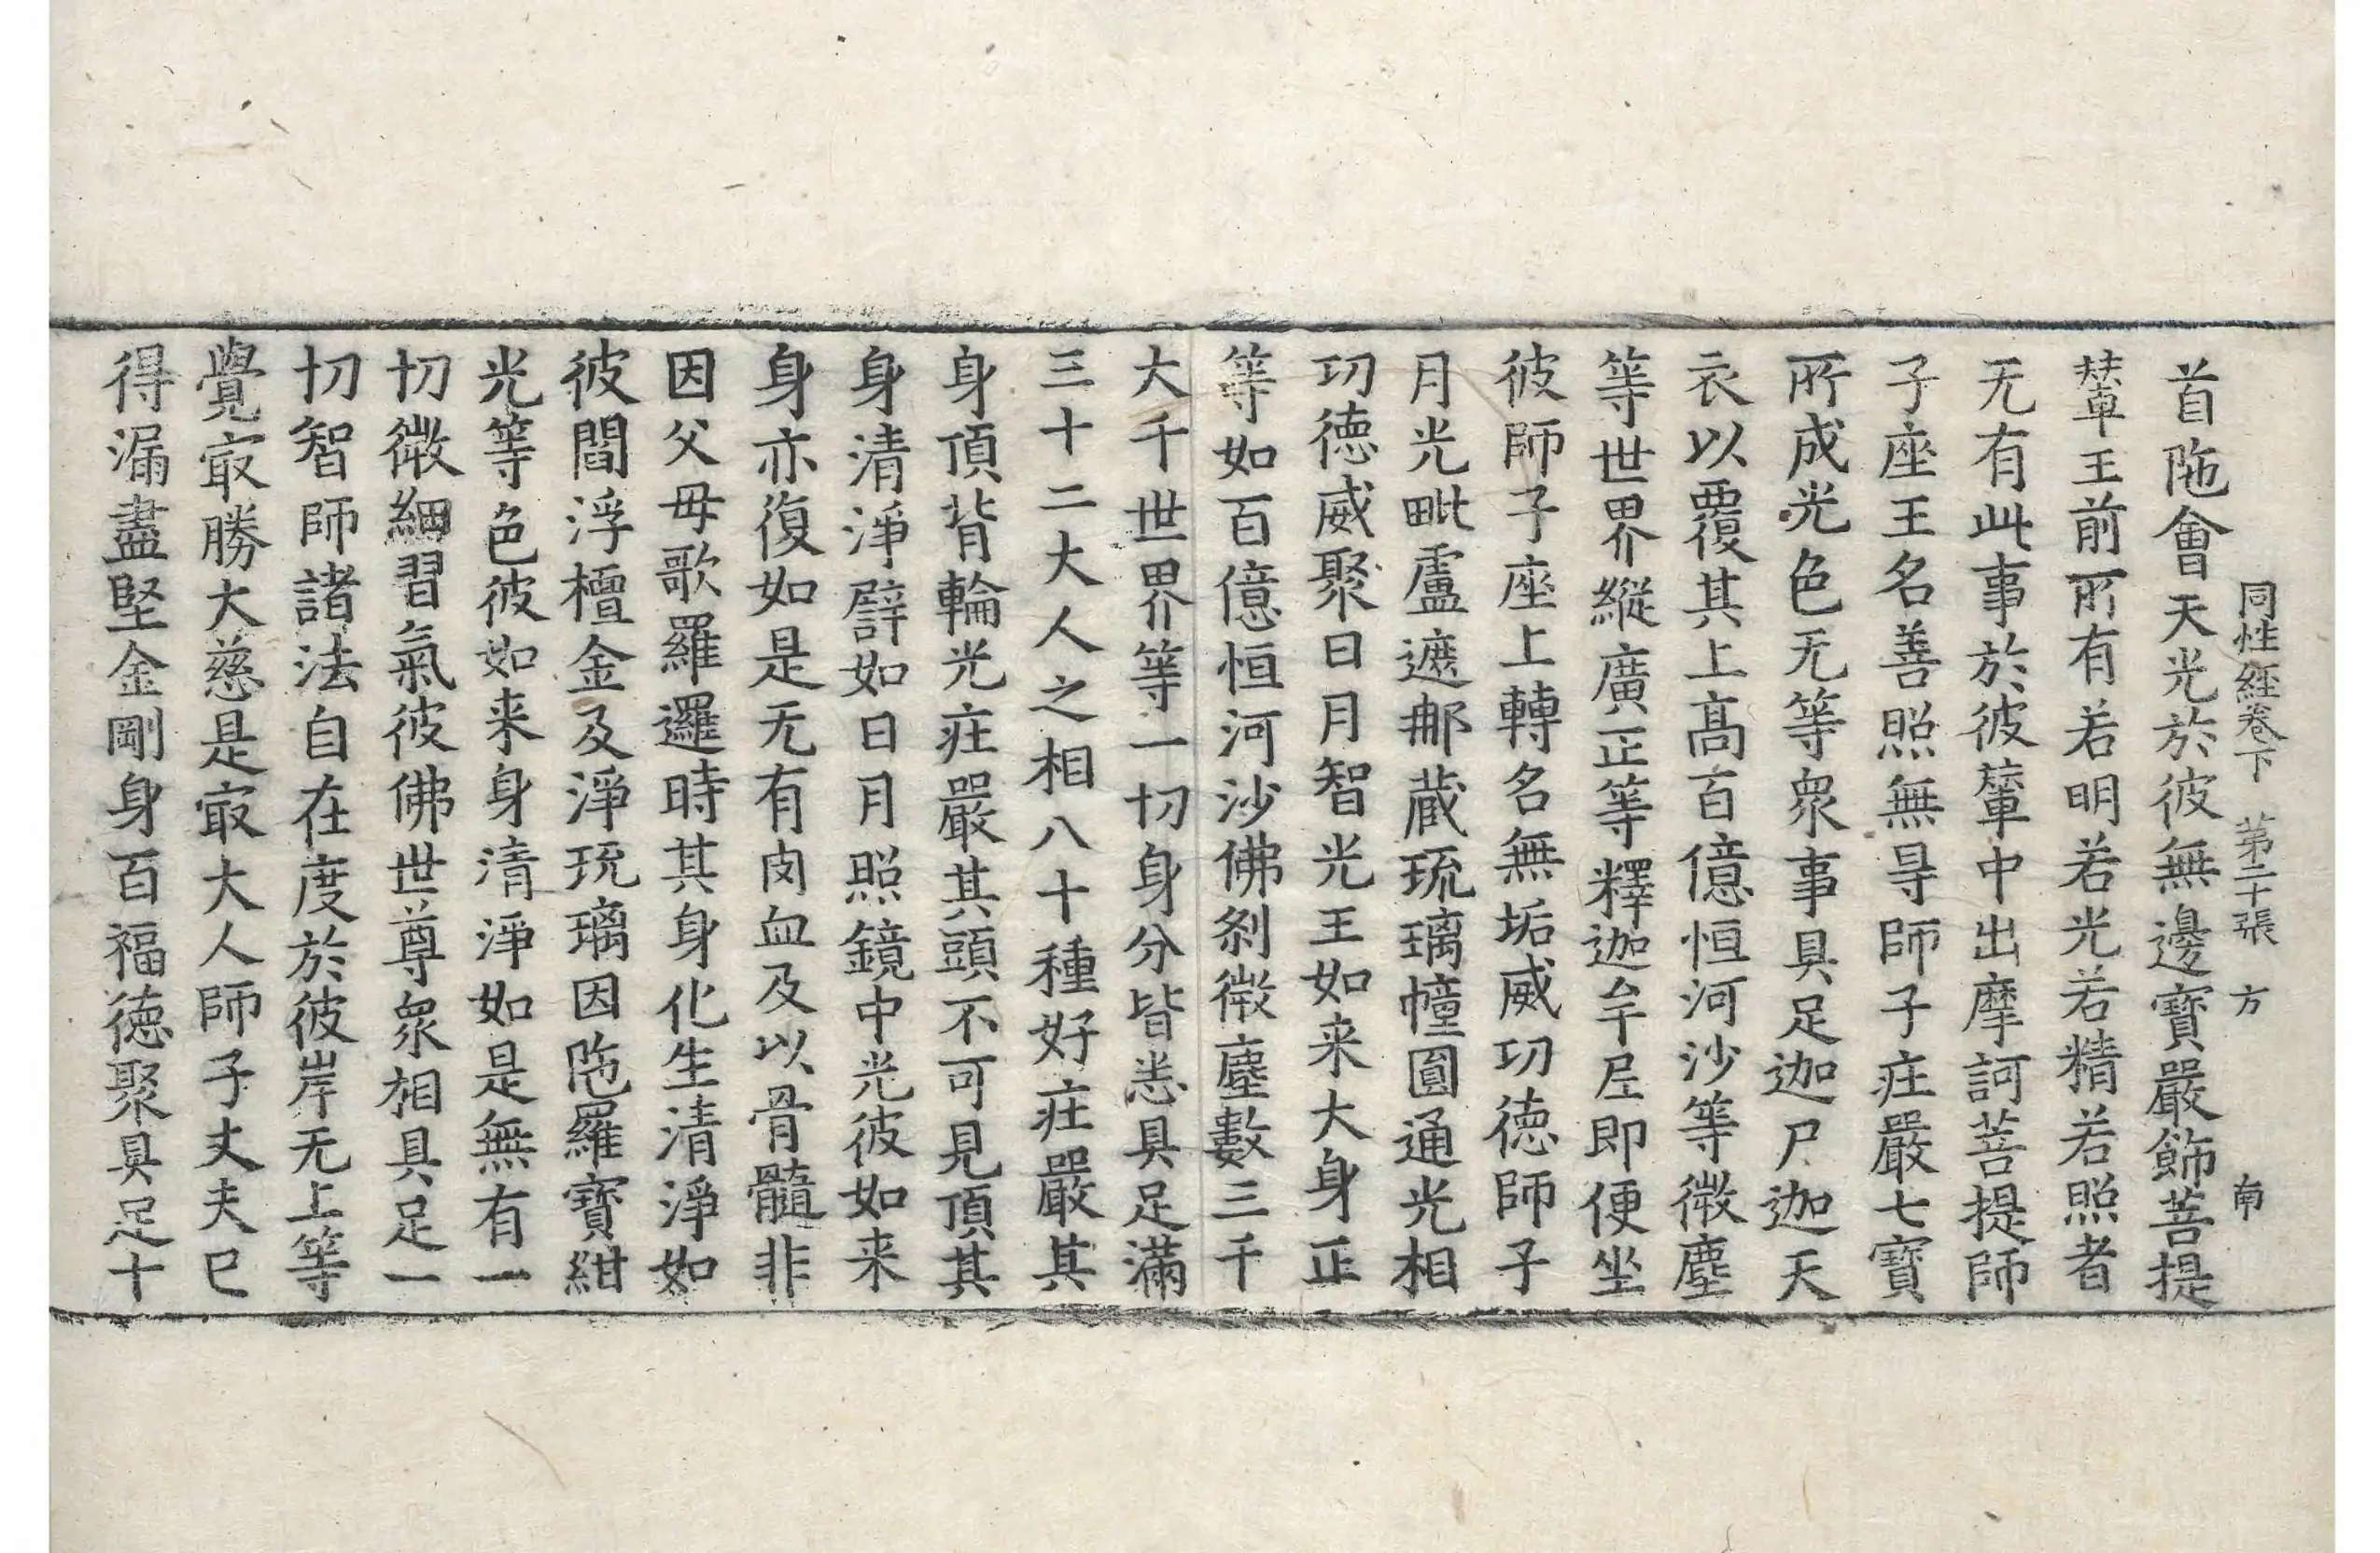 同性経卷下 第二十張 方 南
首陁會天光於彼無邊寶嚴飾菩提
輦王前所有若明若光若精若照者
无有此事於彼輦中出摩訶菩提師
子座王名善照無㝵師子荘嚴七寶
所成光色无等衆事具足迦尸迦天
衣以覆其上高百億恒河沙等微塵
等世界縱廣正等釋迦牟尼即便坐
彼師子座上轉名無垢威功徳師子
月光毗盧遮那蔵琉璃幢圓通光相
功徳威聚日月智光王如来大身正
等如百億恒河沙佛刹微塵數三千
大千世界等一切身分皆悉具足滿
三十二大人之相八十種好荘嚴其
身頂背輪光荘嚴其頭不可見頂其
身清淨譬如日月照鏡中光彼如来
身亦復如是无有肉血及以骨髓非
因父母歌羅邏時其身化生清淨如
彼閻浮檀金及淨琉璃因陁羅寶紺
光等色彼如来身清淨如是無有一
切微細習氣彼佛世尊衆相具足一
切智師諸法自在度於彼岸无上等
覺㝡勝大慈是㝡大人師子丈夫已
得漏盡堅金剛身百福徳聚具足十